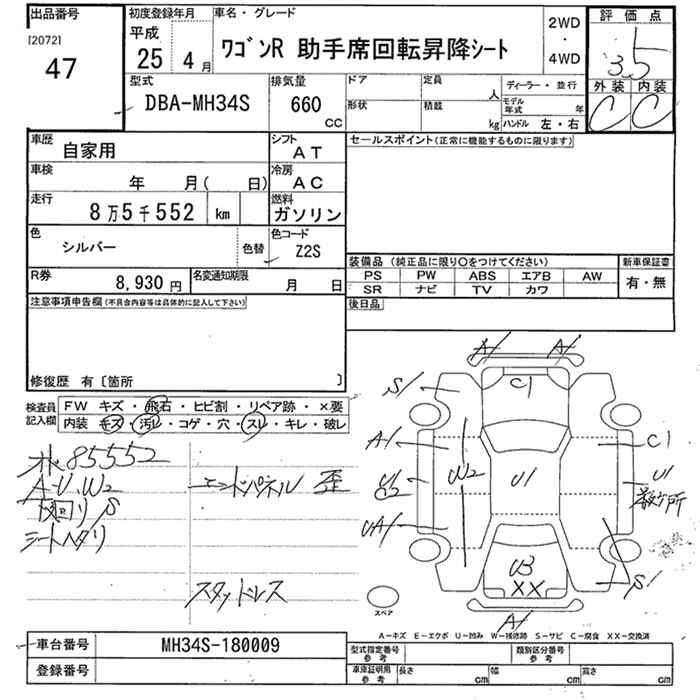 出品番号 初度登録年月 車名・グレード 2WD 評価点
[2072] 平成 ・
47 25年 4月 ワゴンR 助手席回転昇降シート 4WD 3.5
型式 排気量 ドア 定員 人 ディーラー・並行 外装 内装
DBA-MH34S 660 CC 形状 積載 kg モデル年式 年 C C
ハンドル 左・右
車歴 自家用 シフト AT セールスポイント(正常に機能するものに限ります)
車検 年 月( 日) 冷房 AC
走行 8万5千552 km 燃料 ガソリン
色 シルバー 色替 色コード Z2S
装備品 (純正品に限り○をつけてください) 新車保証書
R券 8,930円 名変通知期限 月 日 PS PW ABS エアB AW 有・無
SR ナビ TV カワ
注意事項申告欄(不具合内容等は具体的に記入して下さい) 後日品
修復歴 有〔箇所 〕
検査員記入欄 FW キズ・飛石・ヒビ割・リペア跡・×要
内装 キズ・汚レ・コゲ・穴・スレ・キレ・破レ
85552
A・U、W2 エンドパネル 歪
シートヘタリ
スタッドレス
A1 A1
S1 C1
A1 W2 U1 C1
U1
UA1 数カ所
U3
XX S1
A1
スペア
A-キズ E-エクボ U-凹み W-補修跡 S-サビ C-腐食 XX-交換済
車台番号 MH34S-180009 型式指定番号 参考 類別区分番号 参考
登録番号 車庫証明用 参考 長さ cm 幅 cm 高さ cm